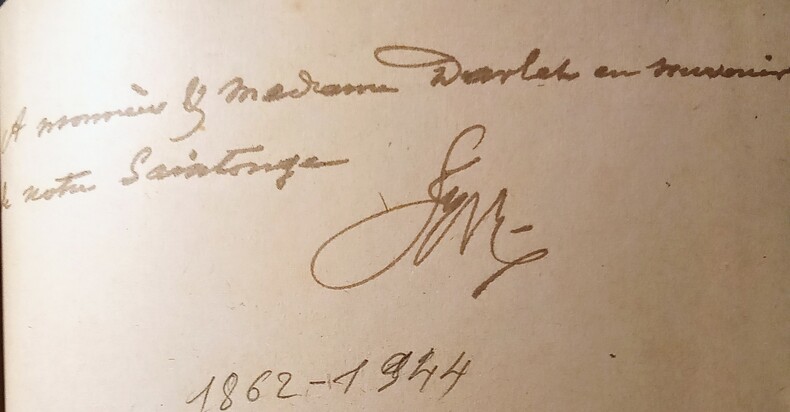 A monsieur & Madame Darlet en souvenir
de notre Saintonge
1862-1944